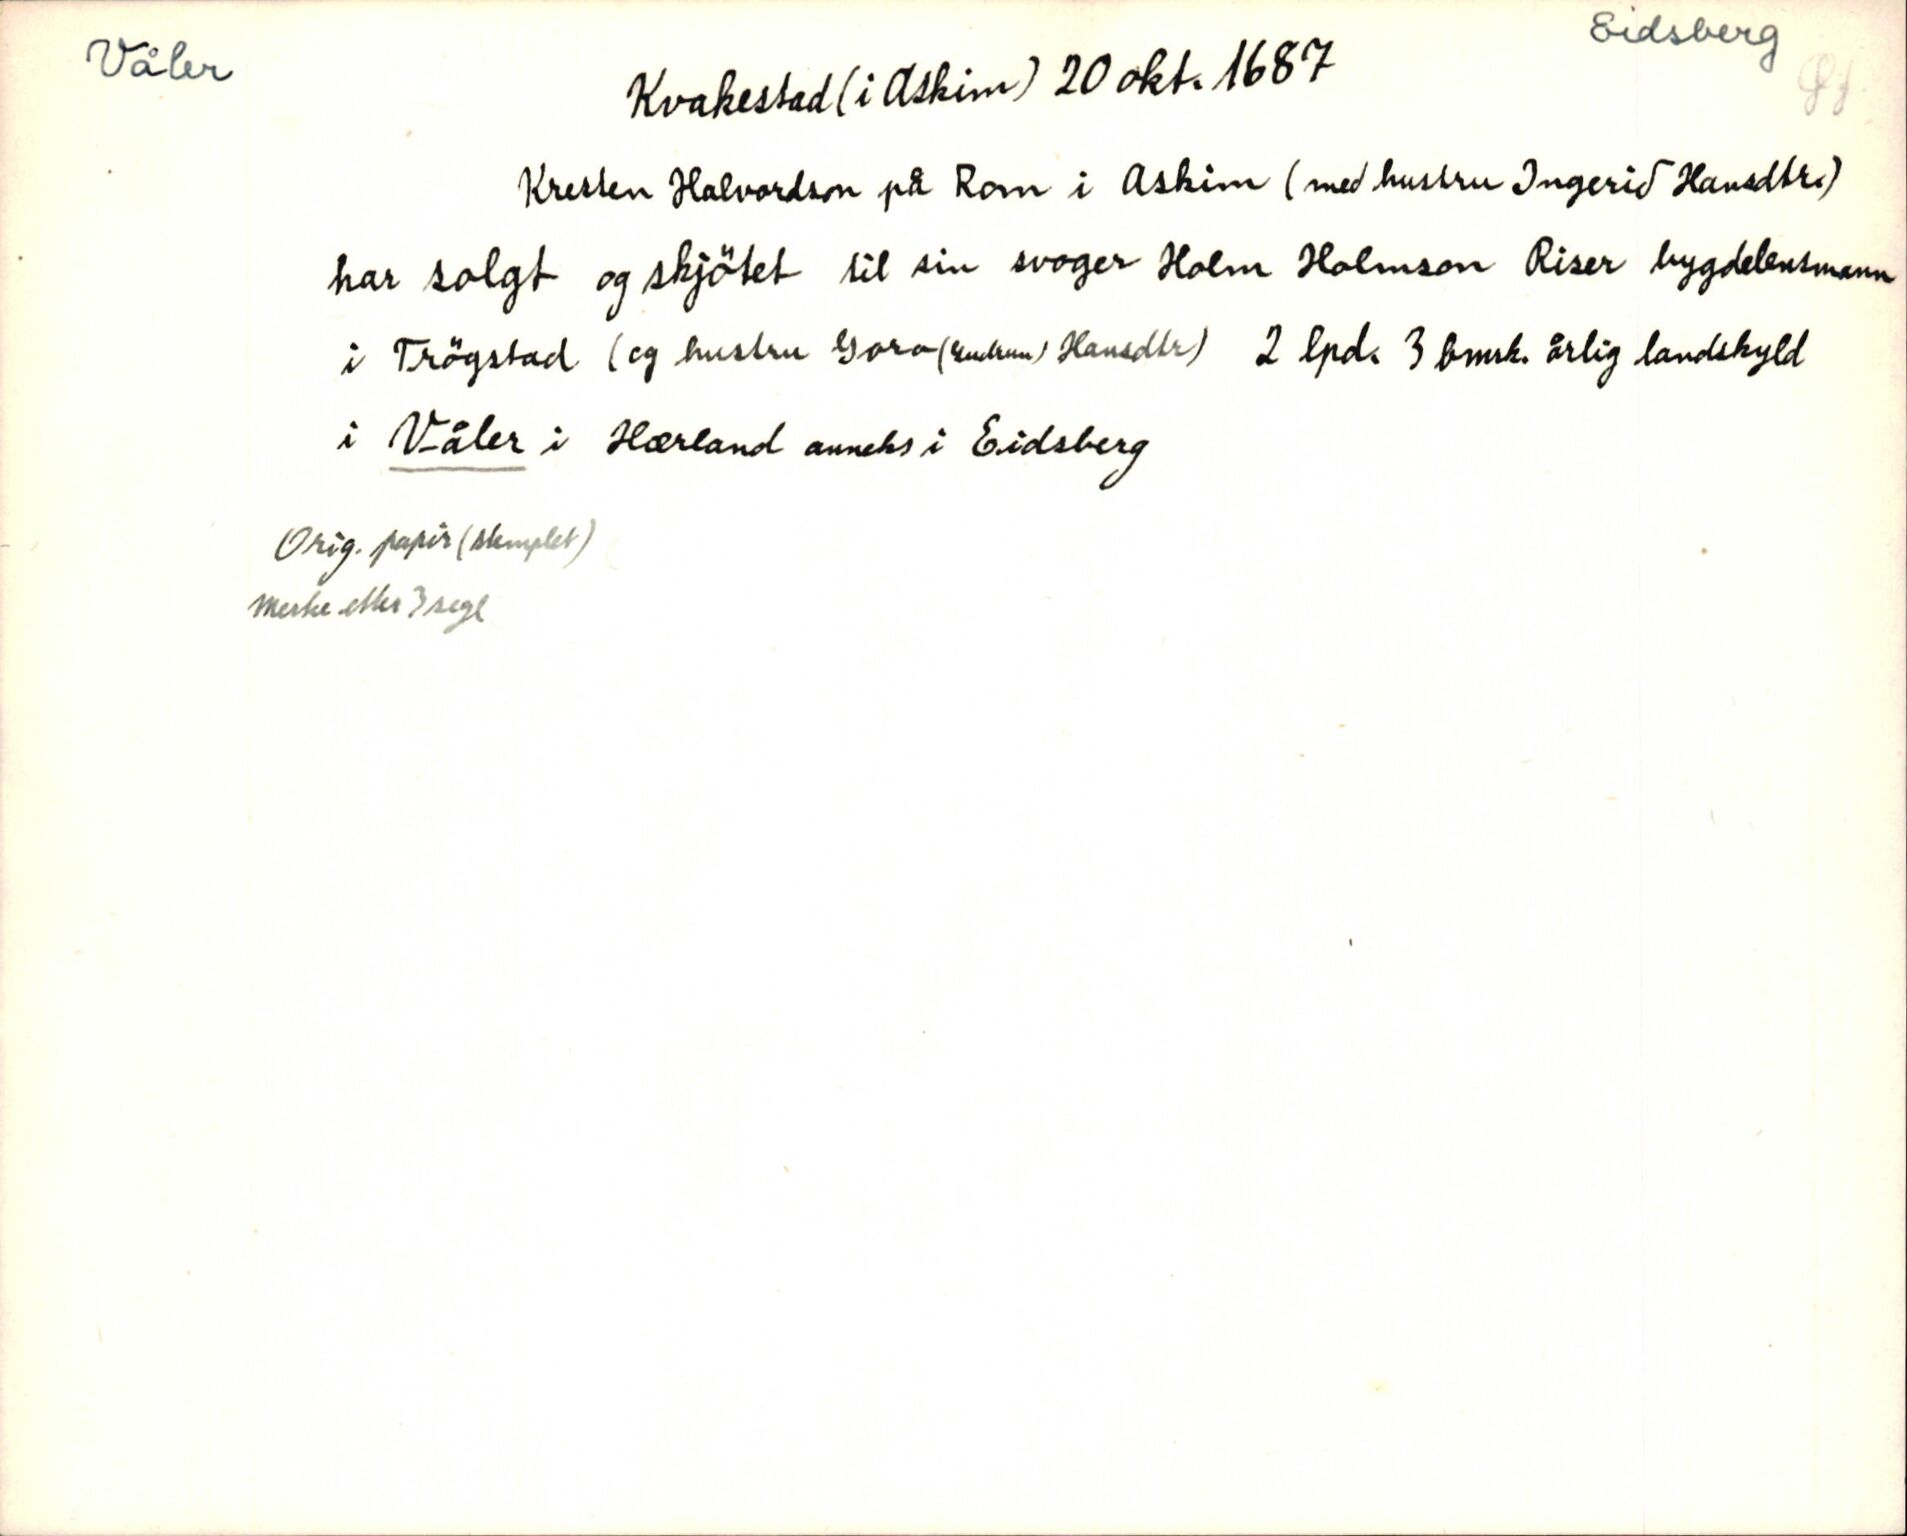 Våler
Eidsberg
Kvakestad (i Askim) 20 okt. 1687
Kresten Halvordson på Rom i Askim (med hustru Ingerid Hansdtr.)
har solgt og skjötet til sin svoger Holm Holmson Riser bygdelensmann
i Trögstad (og hustru Goro (Gudrun) Hansdtr) 2 lpd. 3 bmrk. årlig landskyld
i Våler i Hærland anneks i Eidsberg
Orig. papir (stemplet)
Merke etter 3 segl